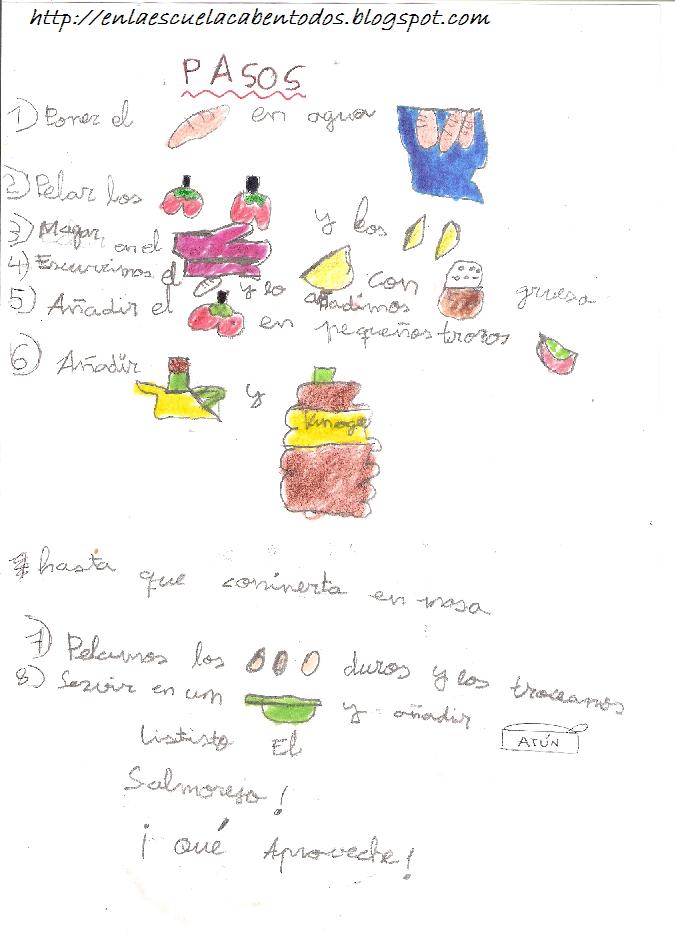 http://enlaescuelacabentodos.blogspot.com
PASOS
1) Poner el en agua
2) Pelar los y los
3) Majar en el
4) Escurrimos el y lo añadimos con gruesa
5) Añadir el en pequeños trozos
6) Añadir y
Vinagre
hasta que coninerta en masa
7) Pelamos los duros y los troceamos
8) Servir en un y añadir
ATÚN
Lististo El
Salmorejo!
¡Qué Aproveche!